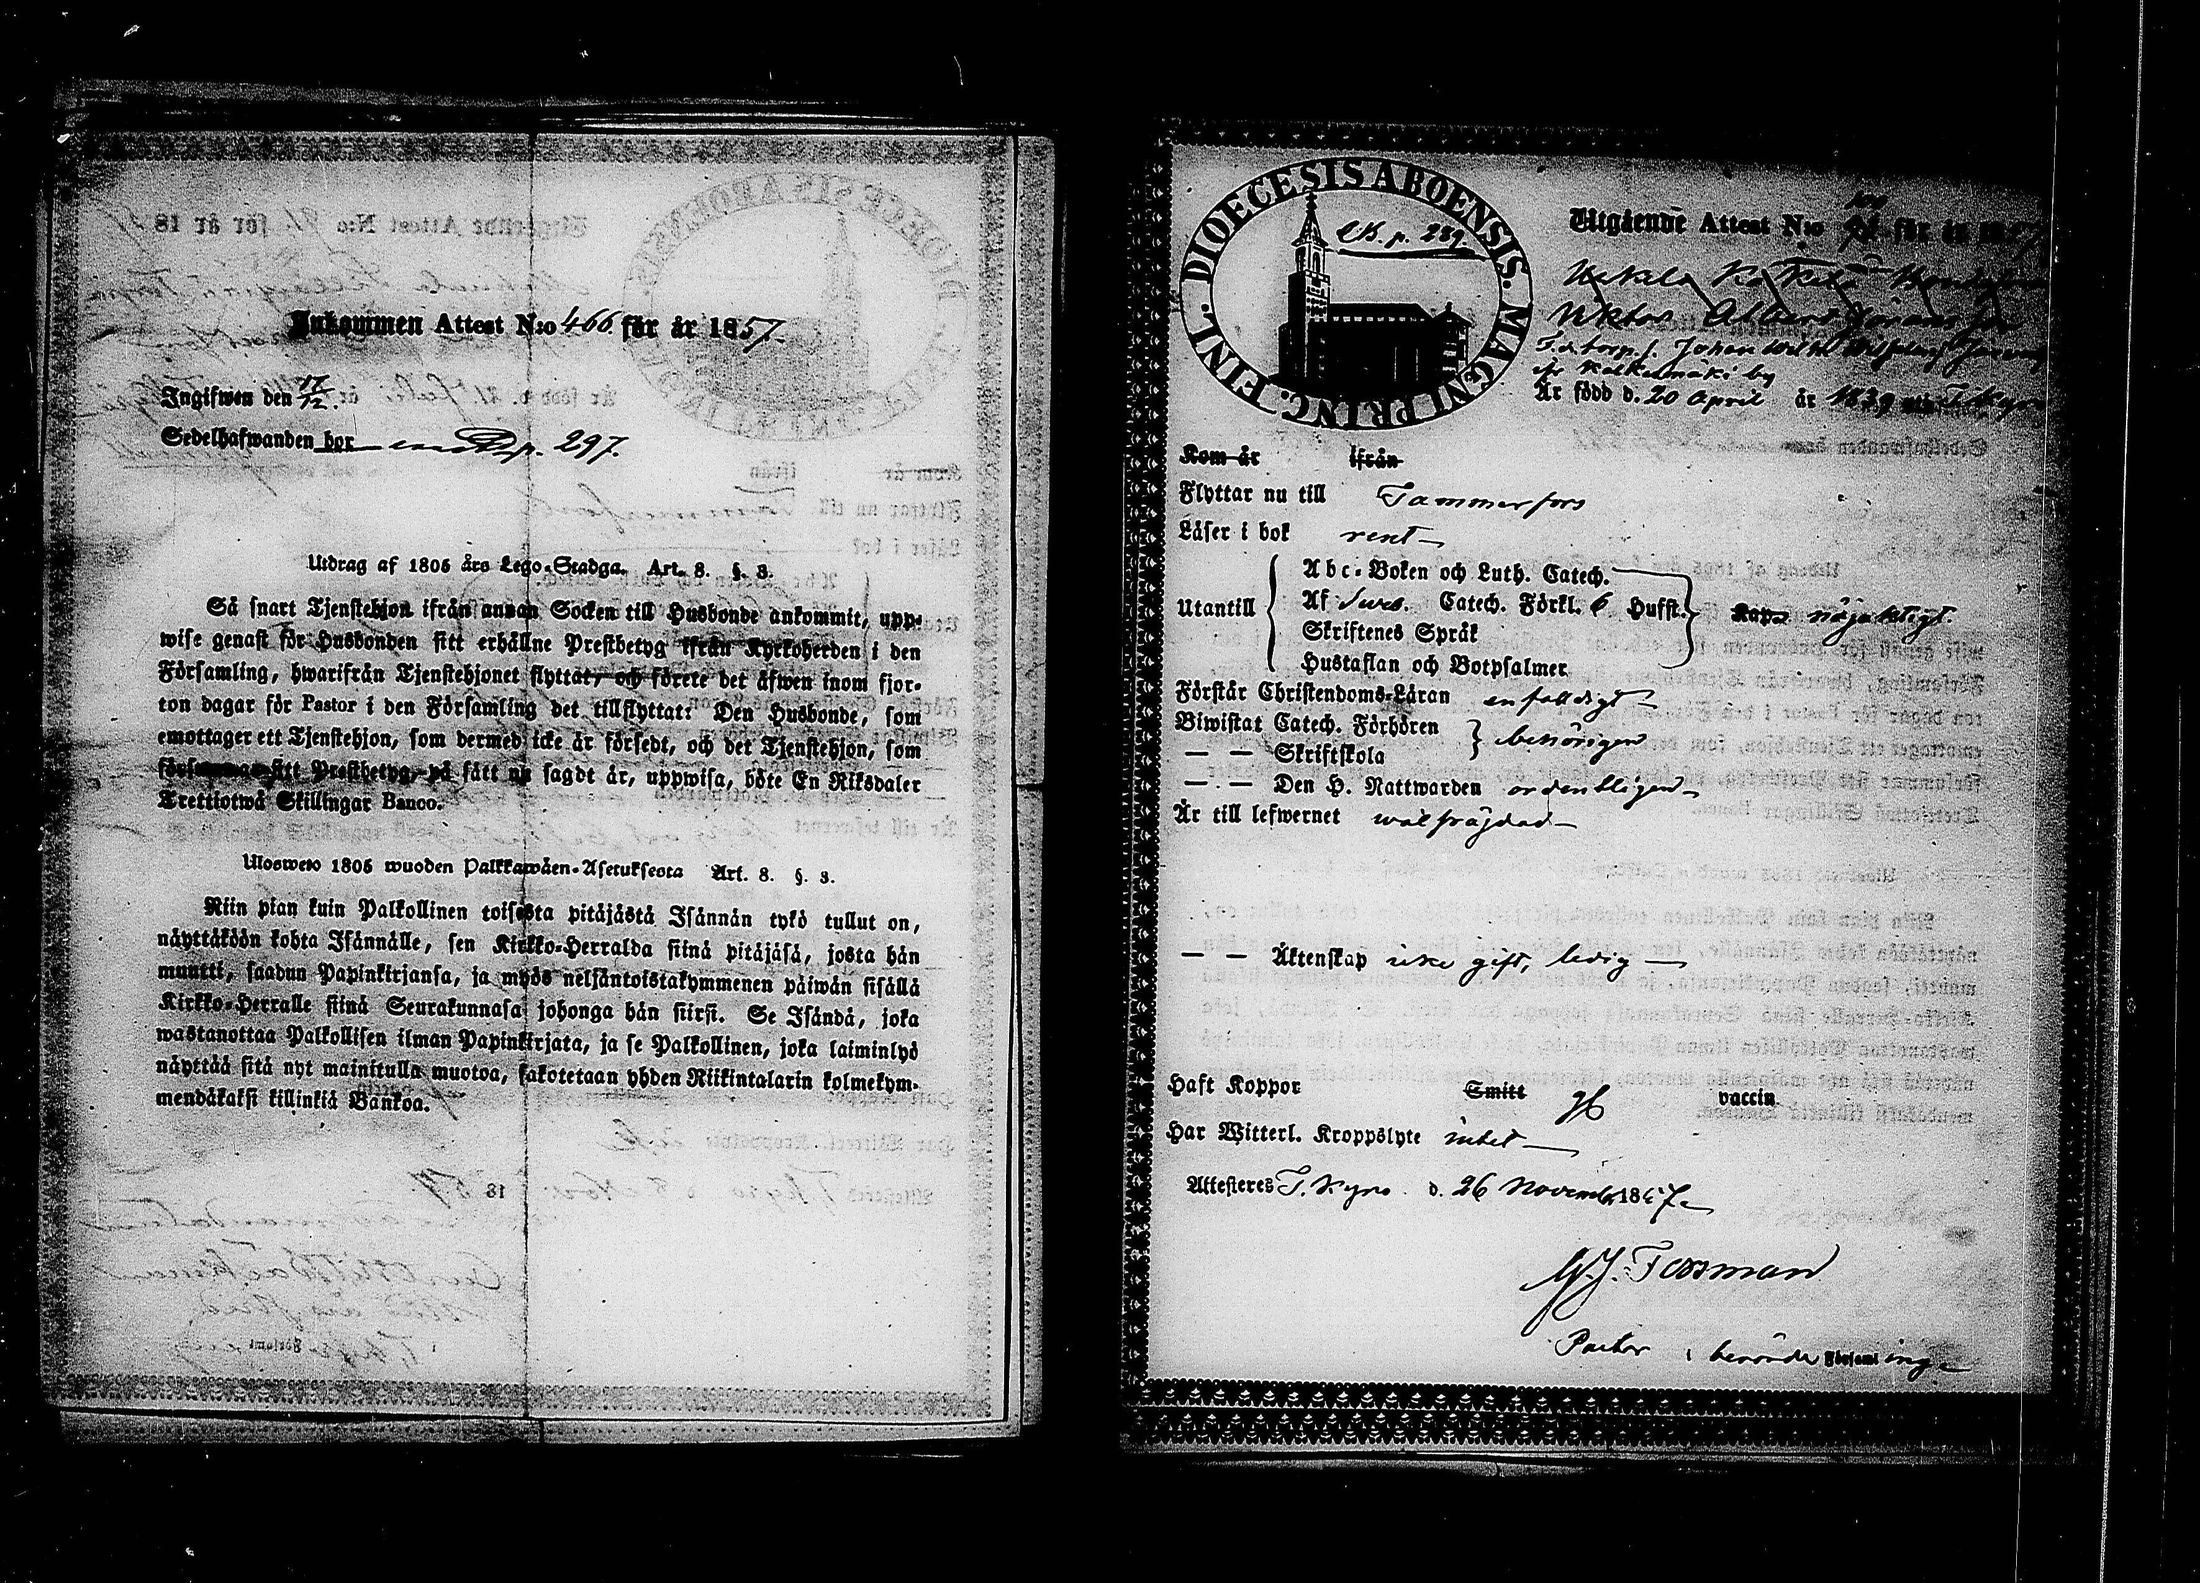 Inkommen Attest N:o 466 för år 1857.
Ingifwen den 17/12.
Sedelhafwanden bor p. 297.
Utdrag af 1805 års Lego-Stadga. Art. 8. §. 3.
Så snart Tjenstehjon ifrån annan Socken till Husbonde ankommit, upp-
wise genast för Husbonden sitt erhållne Prestbetyg ifrån Kyrkoherden i den
Församling, hwarifrån Tjenstehjonet flyttat, och förete det äfwen inom fjor-
ton dagar för Pastor i den Församling det tillflyttat: Den Husbonde, som
emottager ett Tjenstehjon, som dermed icke är försedt, och det Tjenstehjon, som
försummar sitt Prestbetyg, på sätt nu sagdt är, uppwisa, böte En Riksdaler
Trettiotwå Skillingar Banco.
Uloswеto 1805 wuoden Palkkawäen-Asetuksesta Art. 8. §. 3.
Niin pian kuin Palkollinen toisesta pitäjästä Isännän tykö tullut on,
näyttäköön kohta Isännälle, sen Kirkko-Herralda siinä pitäjäsä, josta hän
muutti, saadun Papinkirjansa, ja myös neljäntoistakymmenen päiwän sisällä
Kirkko-Herralle siinä Seurakunnasa johonga hän siirsi. Se Isändä, joka
wastanottaa Palkollisen ilman Papinkirjata, ja se Palkollinen, joka laiminlyö
näyttää sitä nyt mainitulla muotoa, sakotetaan yhden Riikintalarin kolmekym-
mendäkaksi killinkiä Bankoa.
DIOECESIS ABOENSIS. MAGNI PRINC. FINL.
CK. p. 289.
Utgående Attest N:o 100 för år 1857
Viktor Albert
Johan
Är född d. 20 April år 1839 T. Kyro
Kom år ifrån
Flyttar nu till Tammerfors
Läser i bok rent
Abc-Boken och Luth. Catech.
Utantill Af Sveb. Catech. Förkl. 6 Hufst. nöjaktigt.
Skriftenes Språk
Hustaflan och Botpsalmer
Förstår Christendoms-Läran enfaldigt
Biwistat Catech. Förhören
— — Skriftskola behörigen
— — Den H. Nattwarden ordentligen
Är till lefwernet wälfräjdad
— — Äktenskap icke gift, ledig
Haft Koppor Smitt vaccin
Har Witterl. Kroppslyte intet
Attesteres T. Kyro d. 26 November 1857
Pastor i berörde Församlinge